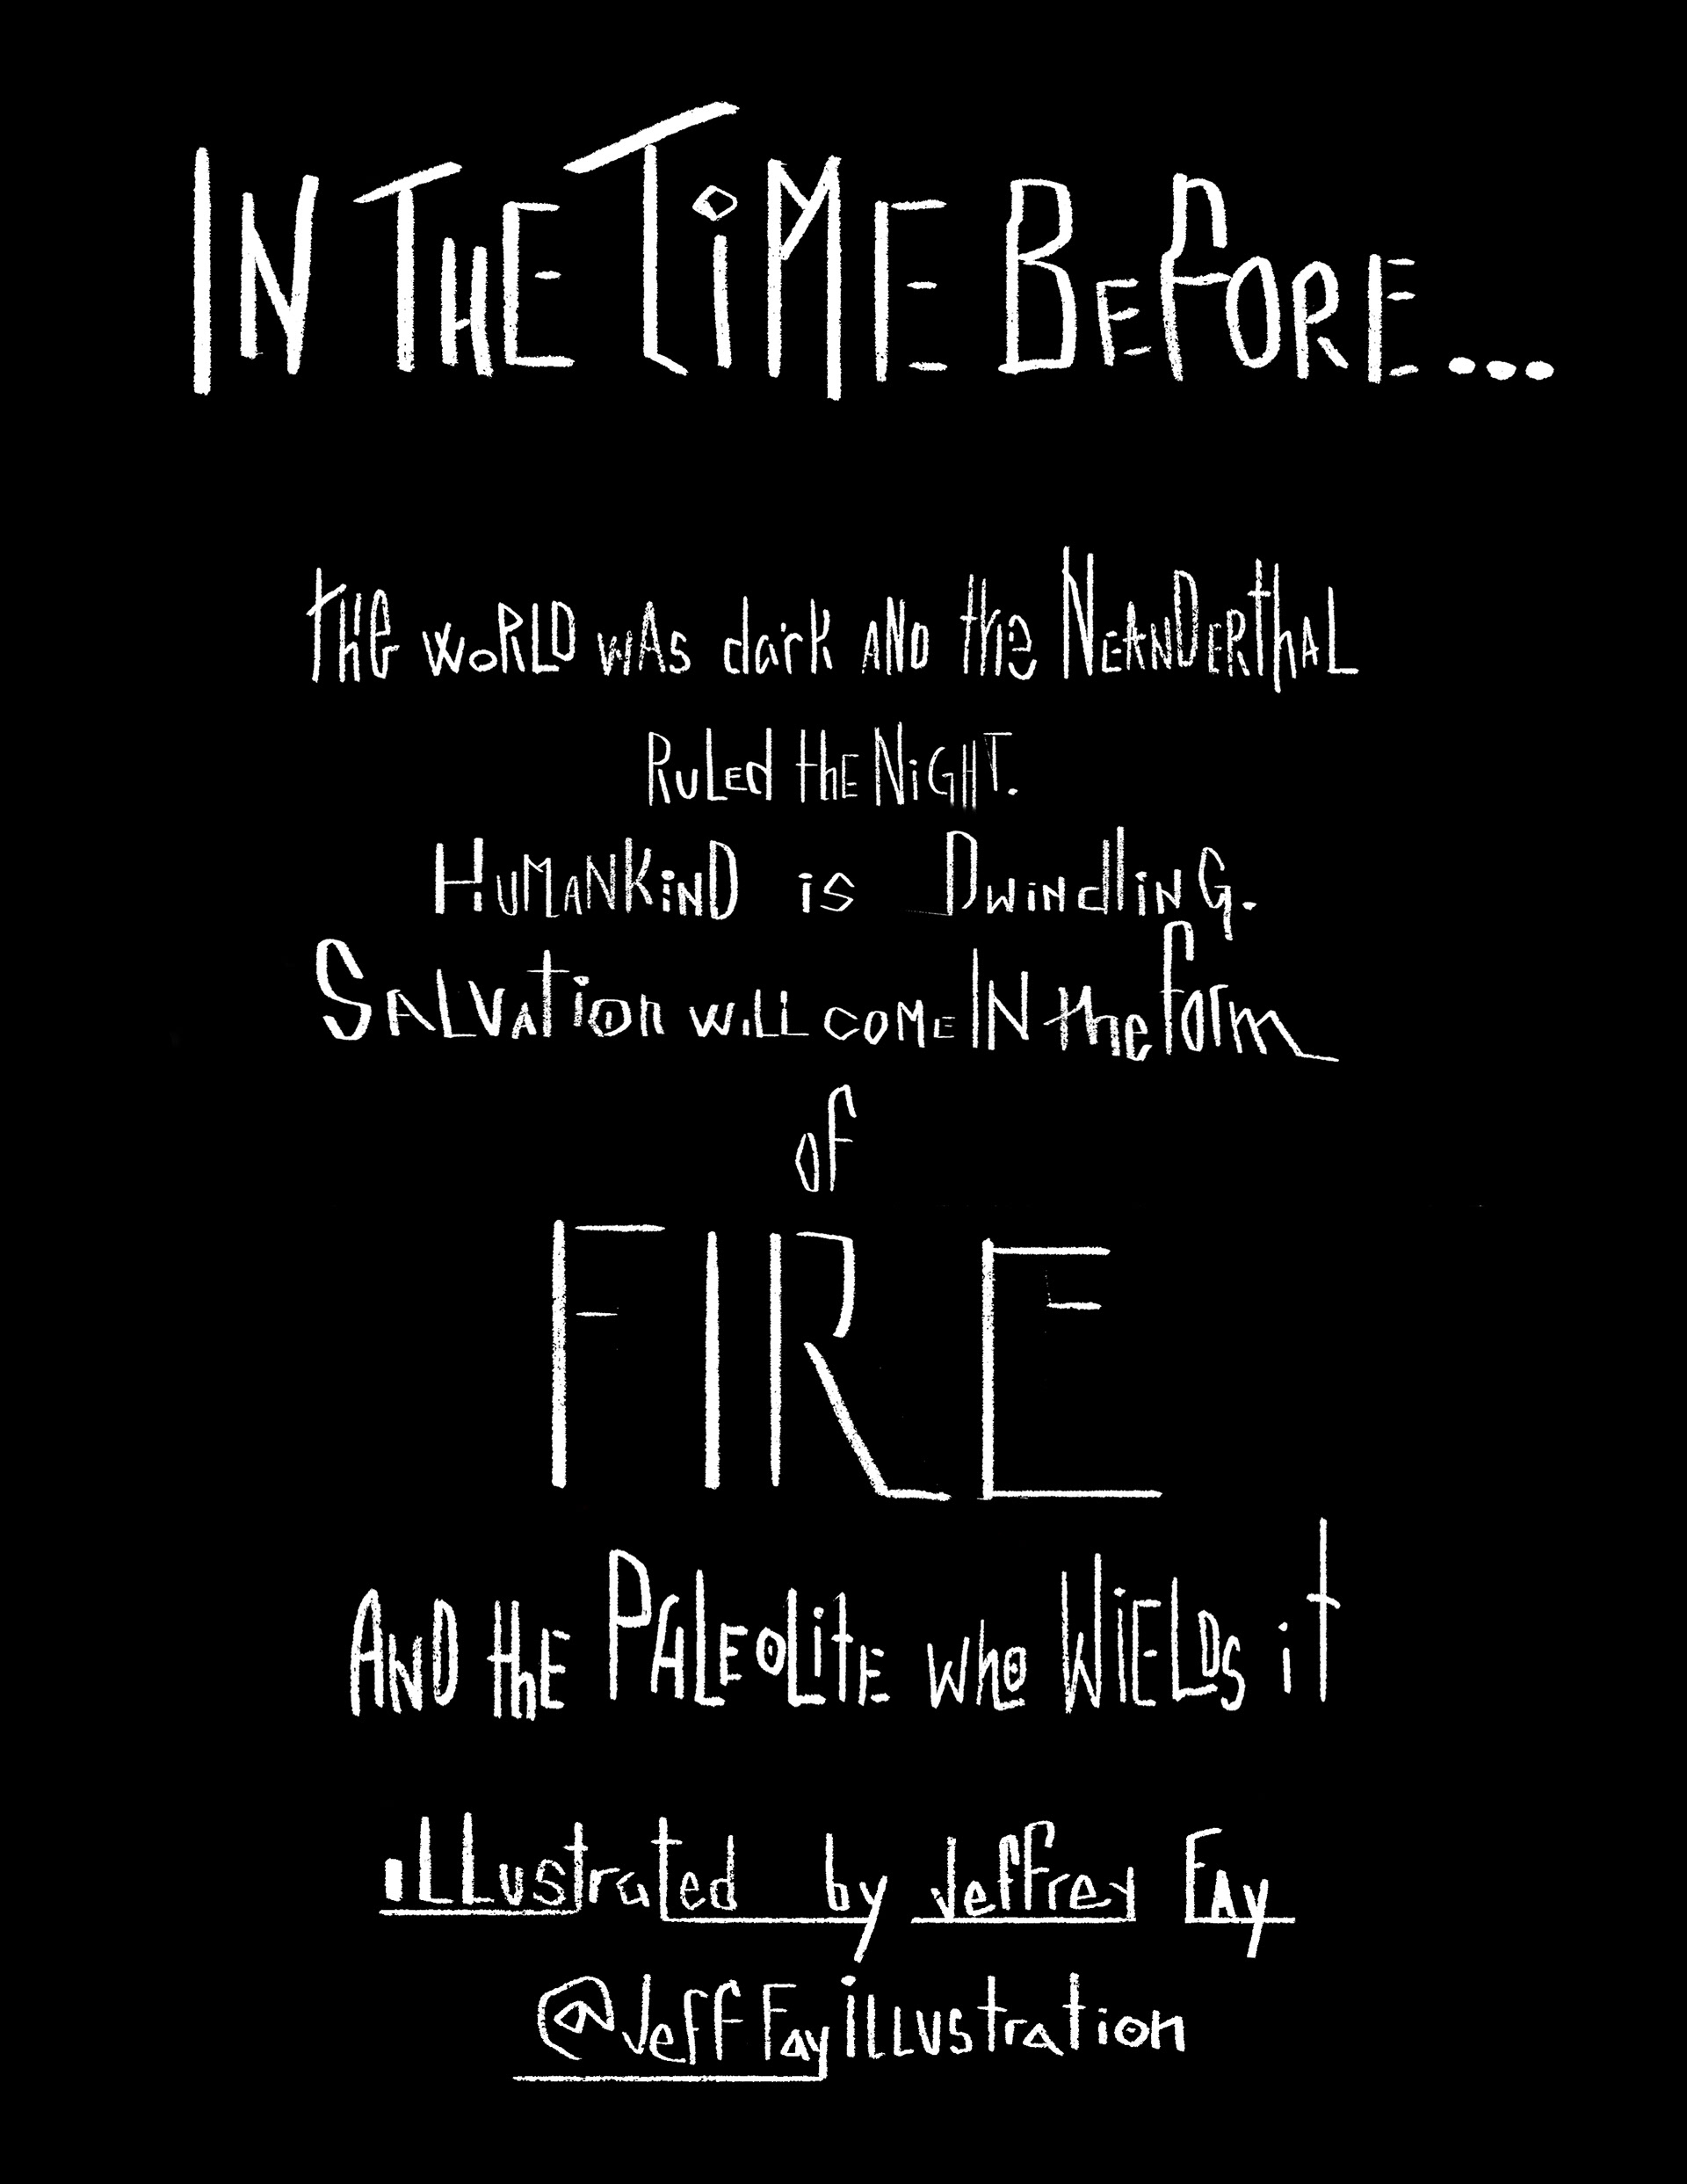 IN THE TiME BEFORE...
tHe WoRLD WAs dark AND the NEANDERthAL
RuLEd thE NiGHT.
HUMANKiND is DwiNdliNG.
SALVAtion wiLL COME IN the form
of
FIRE
AND thE PALEOLitE who WiELDs it
iLLustrated by Jeffrey FAy
@Jeff FayiLLUstration